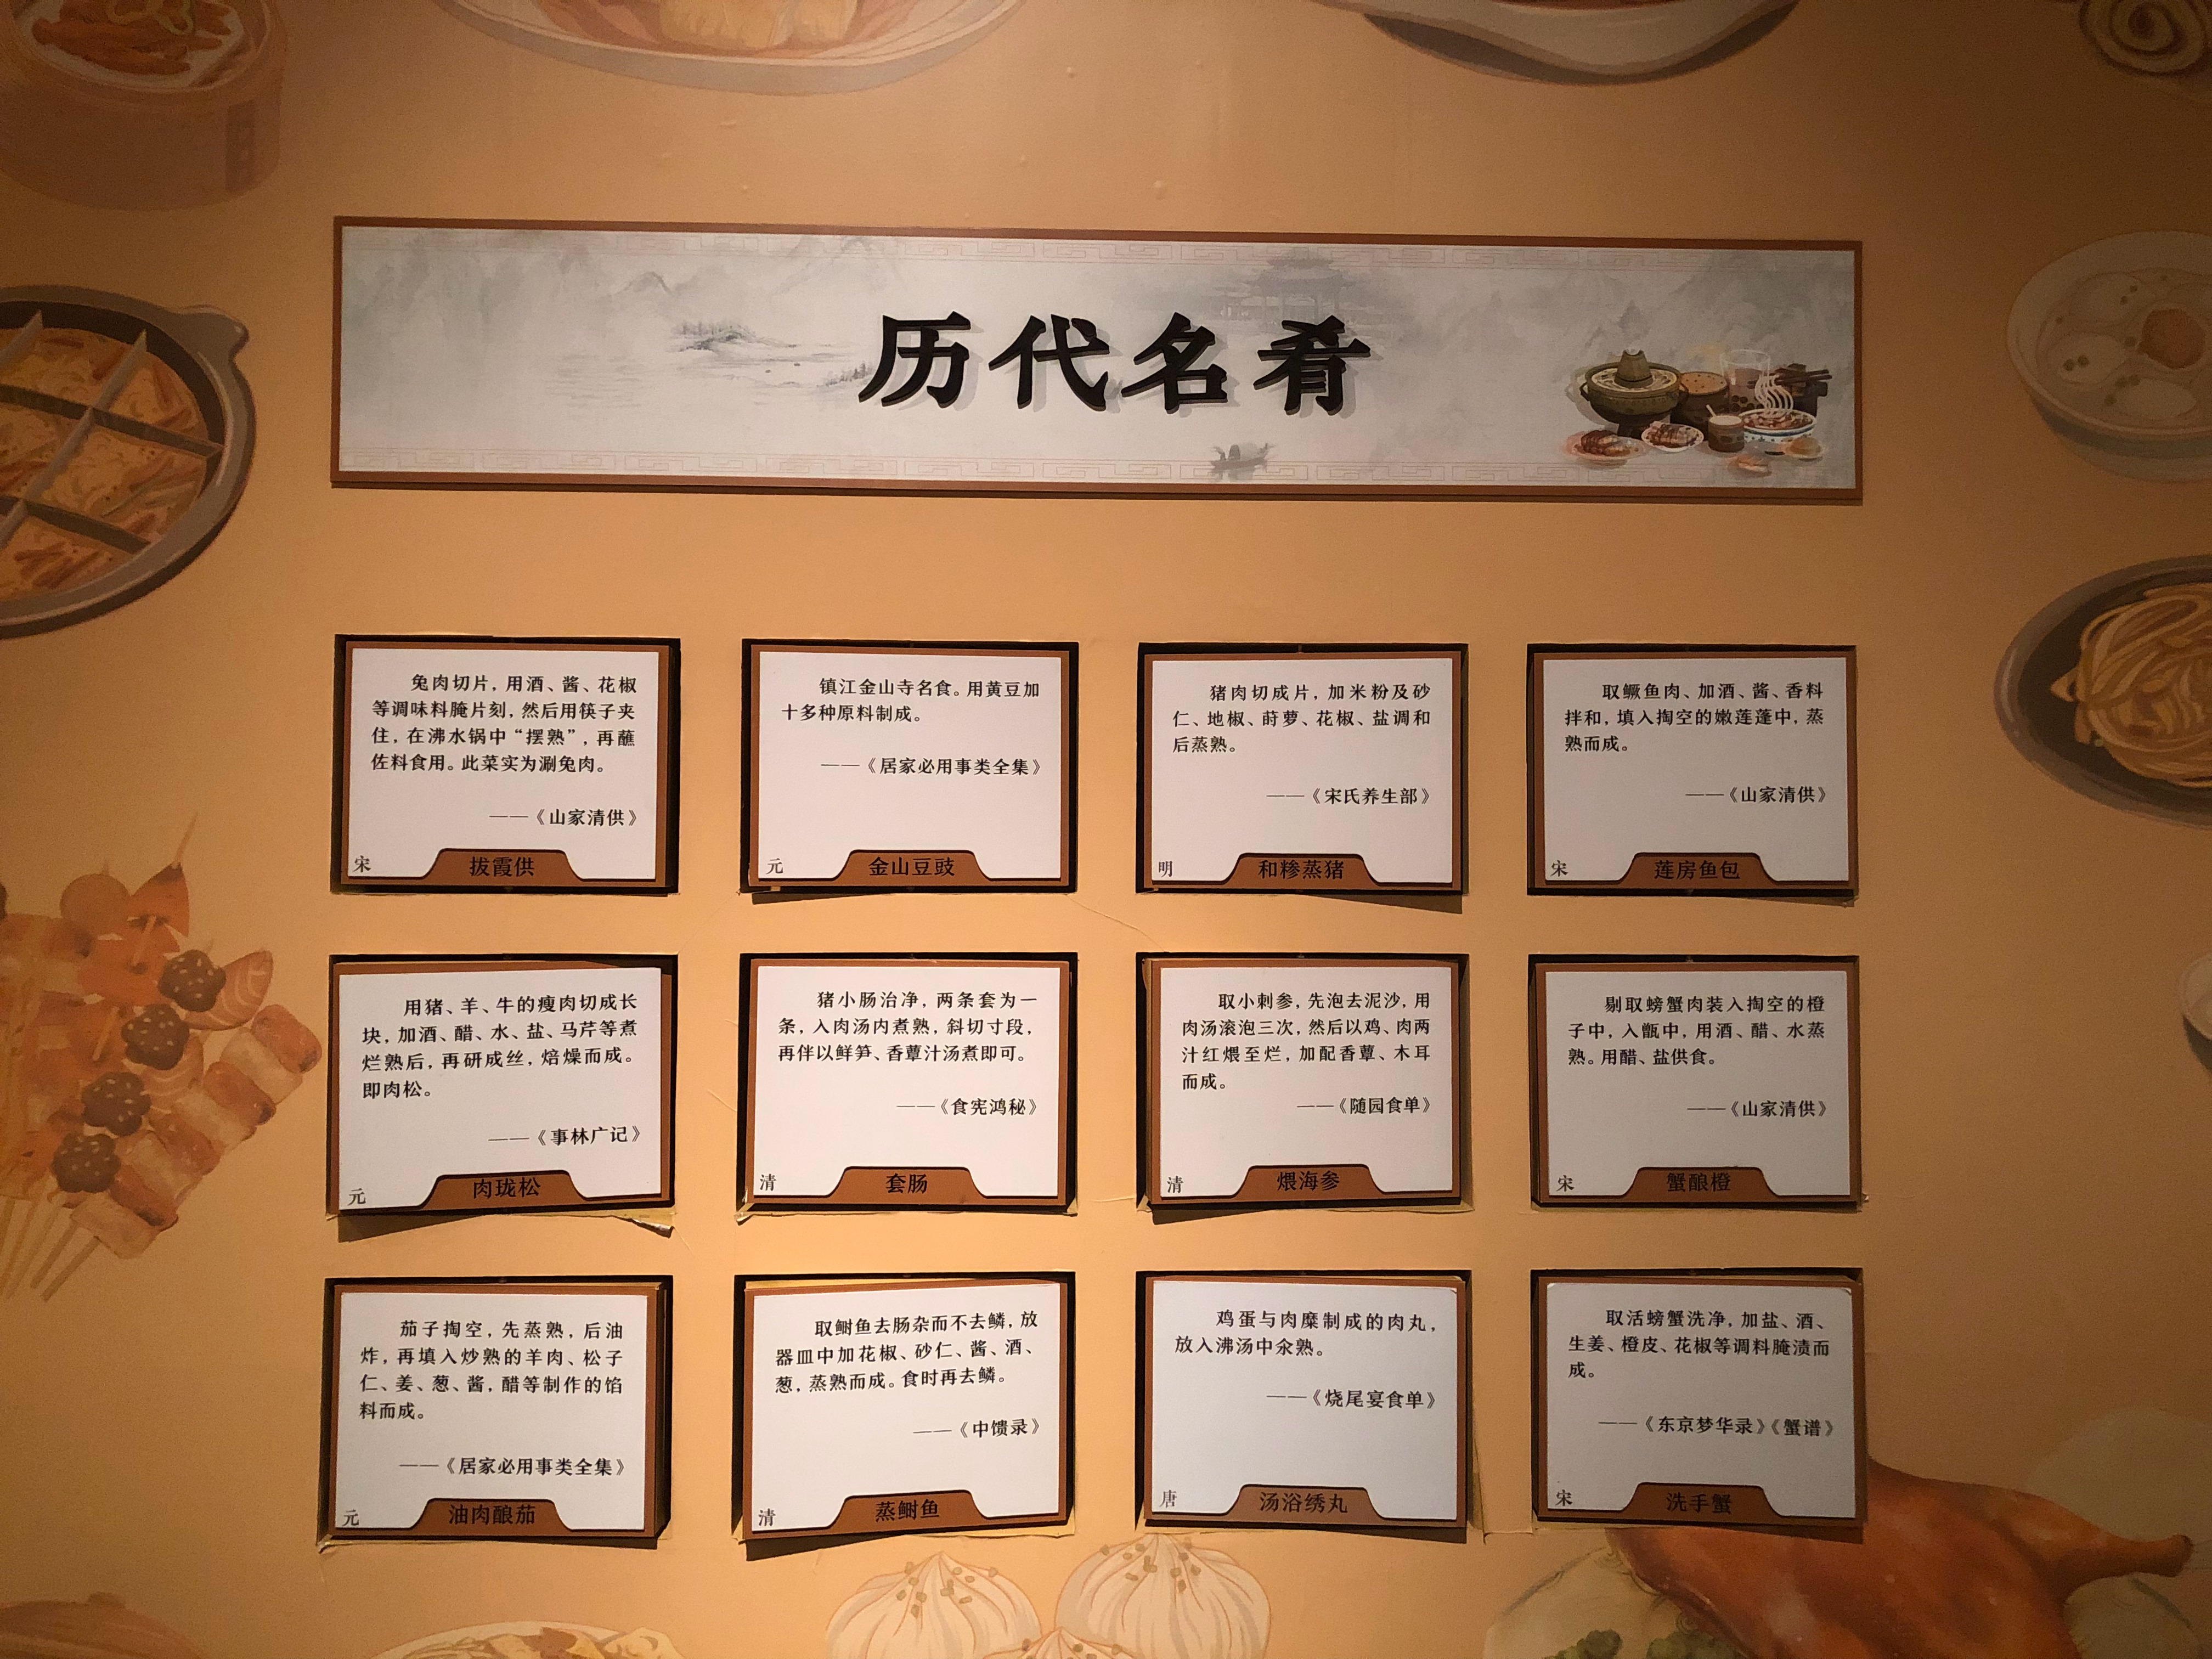 历代名肴
兔肉切片，用酒、酱、花椒
等调味料腌片刻，然后用筷子夹
住，在沸水锅中“摆熟”，再蘸
佐料食用。此菜实为涮兔肉。
——《山家清供》
宋
拔霞供
镇江金山寺名食。用黄豆加
十多种原料制成。
——《居家必用事类全集》
元
金山豆豉
猪肉切成片，加米粉及砂
仁、地椒、莳萝、花椒、盐调和
后蒸熟。
——《宋氏养生部》
明
和糁蒸猪
取鳜鱼肉、加酒、酱、香料
拌和，填入掏空的嫩莲蓬中，蒸
熟而成。
——《山家清供》
宋
莲房鱼包
用猪、羊、牛的瘦肉切成长
块，加酒、醋、水、盐、马芹等煮
烂熟后，再研成丝，焙燥而成。
即肉松。
——《事林广记》
元
肉珑松
猪小肠治净，两条套为一
条，入肉汤内煮熟，斜切寸段，
再伴以鲜笋、香蕈汁汤煮即可。
——《食宪鸿秘》
清
套肠
取小刺参，先泡去泥沙，用
肉汤滚泡三次，然后以鸡、肉两
汁红煨至烂，加配香蕈、木耳
而成。
——《随园食单》
清
煨海参
剔取螃蟹肉装入掏空的橙
子中，入甑中，用酒、醋、水蒸
熟。用醋、盐供食。
——《山家清供》
宋
蟹酿橙
茄子掏空，先蒸熟，后油
炸，再填入炒熟的羊肉、松子
仁、姜、葱、酱，醋等制作的馅
料而成。
——《居家必用事类全集》
元
油肉酿茄
取鲥鱼去肠杂而不去鳞，放
器皿中加花椒、砂仁、酱、酒、
葱，蒸熟而成。食时再去鳞。
——《中馈录》
清
蒸鲥鱼
鸡蛋与肉糜制成的肉丸，
放入沸汤中氽熟。
——《烧尾宴食单》
唐
汤浴绣丸
取活螃蟹洗净，加盐、酒、
生姜、橙皮、花椒等调料腌渍而
成。
——《东京梦华录》《蟹谱》
宋
洗手蟹